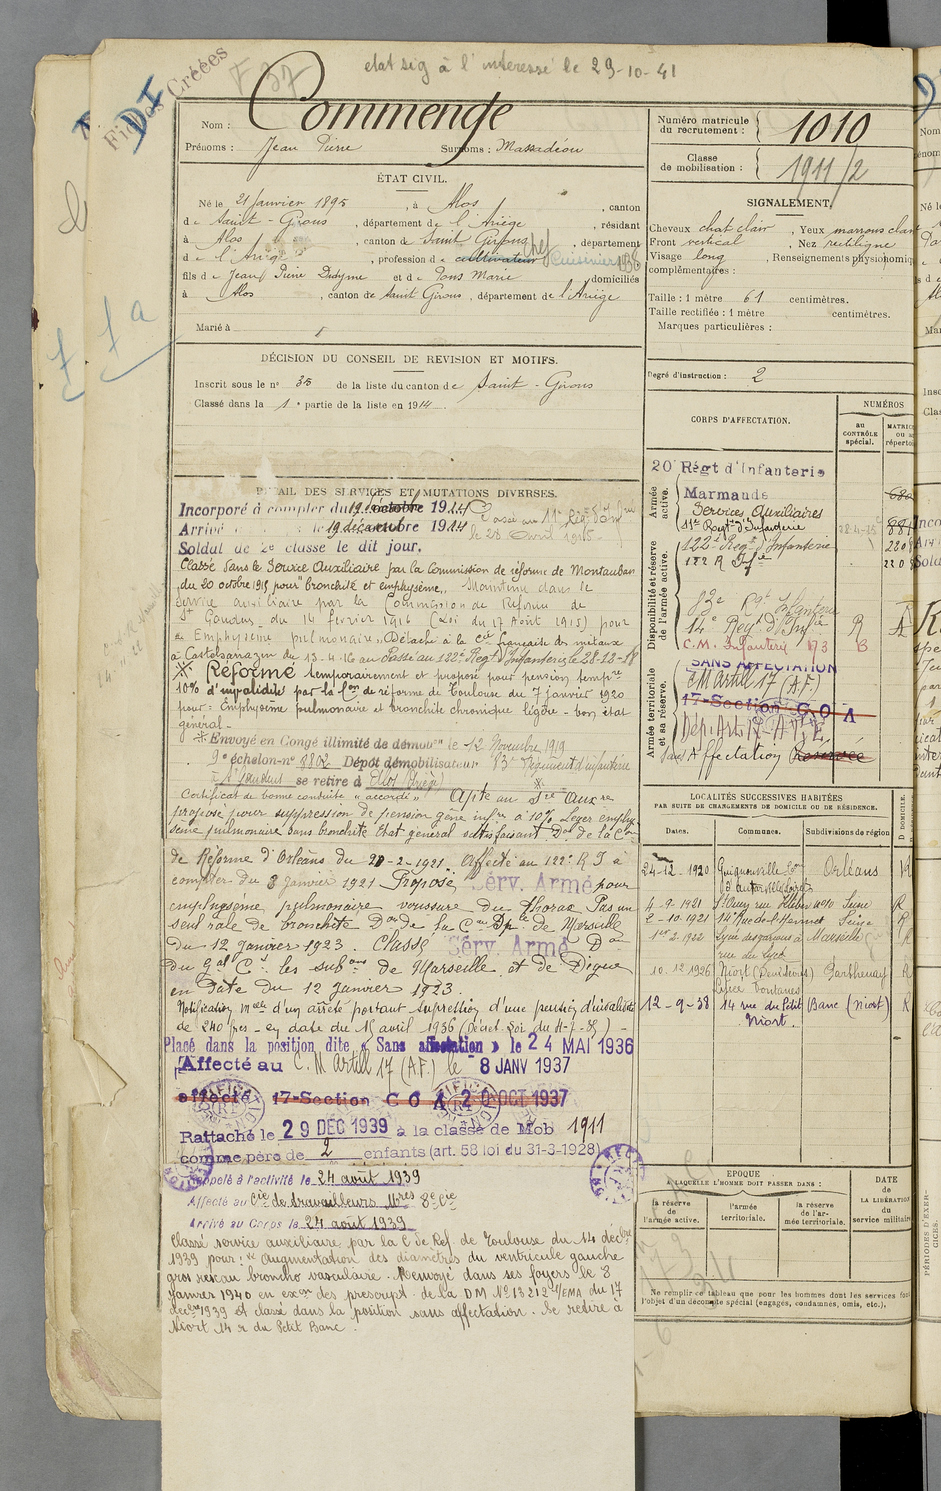 etat sig à l'interessé le 29-10-41
F 37
Fiches Créées
DI
Nom : Commenge
Prénoms : Jean Pierre Surnoms : Massadéou
Numéro matricule du recrutement : 1010
Classe de mobilisation : 1911/2
ÉTAT CIVIL.
Né le 21 janvier 1895, à Alos, canton
de Saint-Girons, département de l'Ariège, résidant
à Alos, canton de Saint Girons, département
de l'Ariège, profession de cultivateur chef Cuisinier 1936
fils de Jean Pierre Didyme et de Pons Marie domiciliés
à Alos, canton de Saint Girons, département de l'Ariège
Marié à
SIGNALEMENT.
Cheveux chat clair, Yeux marrons clair
Front vertical, Nez rectiligne
Visage long, Renseignements physionomiq
complémentaires :
Taille : 1 mètre 61 centimètres.
Taille rectifiée : 1 mètre centimètres.
Marques particulières :
Degré d'instruction : 2
DÉCISION DU CONSEIL DE REVISION ET MOTIFS.
Inscrit sous le n° 35 de la liste du canton de Saint-Girons
Classé dans la 1e partie de la liste en 1914
DÉTAIL DES SERVICES ET MUTATIONS DIVERSES.
Incorporé à compter du 19 octobre 1914
Arrivé le 19 décembre 1914
le 28 avril 1915
Soldat de 2e classe le dit jour.
Classé dans le Service Auxiliaire par la Commission de réforme de Montauban
du 20 octobre 1915 pour "bronchite et emphysème". Maintenu dans le
Service auxiliaire par la Commission de Réforme de
St Gaudens du 14 février 1916 (Loi du 17 Août 1915) pour
Emphysème pulmonaire. Détaché à la Cie française des métaux
à Castelsarrazin du 13-4-16 au Passé au 122e Regt d'Infanterie le 28-12-18
※ Réformé temporairement et proposé pour pension tempre
10% d'invalidité par la Con de réforme de Toulouse du 7 janvier 1920
pour : Emphysème pulmonaire et bronchite chronique légère - bon état
général -
※ Envoyé en Congé illimité de démobon le 12 Novembre 1919
9e échelon-n° 8802 Dépôt démobilisateur 83e Régiment d'infanterie
à St Gaudens se retire à Alos (Ariège)
Certificat de bonne conduite "accordé" Apte au Sce Auxre
proposé pour suppression de pension gène infre à 10% Léger emphy
sème pulmonaire sans bronchite Etat général satisfaisant Don de la Con
de Réforme d'Orléans du 21-2-1921 Affecté au 122e R I à
compter du 8 Janvier 1921 Proposé Serv. Armé pour
emphysème pulmonaire voussure du thorax Pas un
seul rale de bronchite Don de la Con Dple de Marseille
du 12 janvier 1923. Classé Serv. Armé Don
du Gal Ct les subons de Marseille et de Digne
en date du 12 janvier 1923.
Notification melle d'un arrêté portant suppression d'une pension d'invalidité
de 240 frs - en date du 15 avril 1936
Placé dans la position dite « Sans affectation » le 24 MAI 1936
Affecté au C.M Artill 17 (A.F.) le 8 JANV 1937
affecté 17e Section C O A 20 OCT 1937
Rattaché le 29 DEC 1939 à la classe de Mob 1911
comme père de 2 enfants (art. 58 loi du 31-3-1928)
Rappelé à l'activité le 24 août 1939
Affecté au Cie de travailleurs Mres 8e Cie
Arrivé au Corps le 24 août 1939
Classé service auxiliaire par la C de Ref. de Toulouse du 14 décbre
1939 pour : "Augmentation des diamètres du ventricule gauche
gros réseau broncho vasculaire. Renvoyé dans ses foyers le 8
janvier 1940 en exon des prescript. de la DM N° 13212/EMA du 17
decbre 1939 et classé dans la position sans affectation. Se retire à
Niort 14 r du Petit Banc.
CORPS D'AFFECTATION.
NUMÉROS
au CONTRÔLE spécial.
MATRIC ou au répertoi
Armée active.
20 Régt d'Infanterie
Marmande
Services Auxiliaires
11e Regt d'Infanterie
Disponibilité et réserve de l'armée active.
122e Regt d'Infanterie
122 R Infie
83e Rgt Infanterie
14e Regt d'Infie R
C.M. Infanterie 173 B
Armée territoriale et sa réserve.
SANS AFFECTATION
C M Artill 17 (A.F.)
17e Section C O A
Sans Affectation Réservée
LOCALITÉS SUCCESSIVES HABITÉES
PAR SUITE DE CHANGEMENTS DE DOMICILE OU DE RÉSIDENCE.
Dates. Communes. Subdivisions de région
D DOMICILE
24-12-1920 Guignonville Con d'Outarville Loiret Orléans R
4-9-1921 St Ouen rue Kléber n° 10 Seine R
2-10-1921 Seine R
1er 2.1922 Lycée des garçons à Marseille rue du Lycée Marseille R
10.12 1926 Niort (Deux Sèvres) Lycée Fontanes Parthenay R
12-9-38 14 rue du Petit Banc (Niort) R
Niort.
EPOQUE
A LAQUELLE L'HOMME DOIT PASSER DANS :
la réserve de l'armée active.
l'armée territoriale.
la réserve de l'armée territoriale.
DATE de LA LIBÉRATION du service militaire
Ne remplir ce tableau que pour les hommes dont les services font
l'objet d'un décompte spécial (engagés, condamnés, omis, etc.).
PÉRIODES D'EXERCICES.